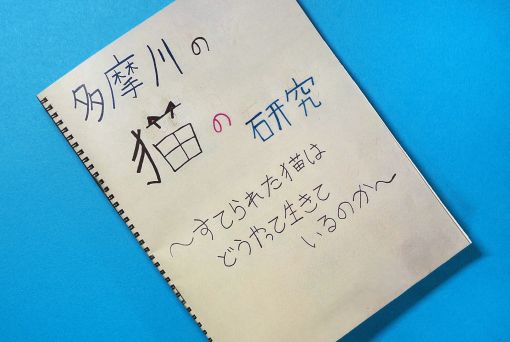 多摩川の
猫の研究
〜すてられた猫は
どうやって生きて
いるのか〜